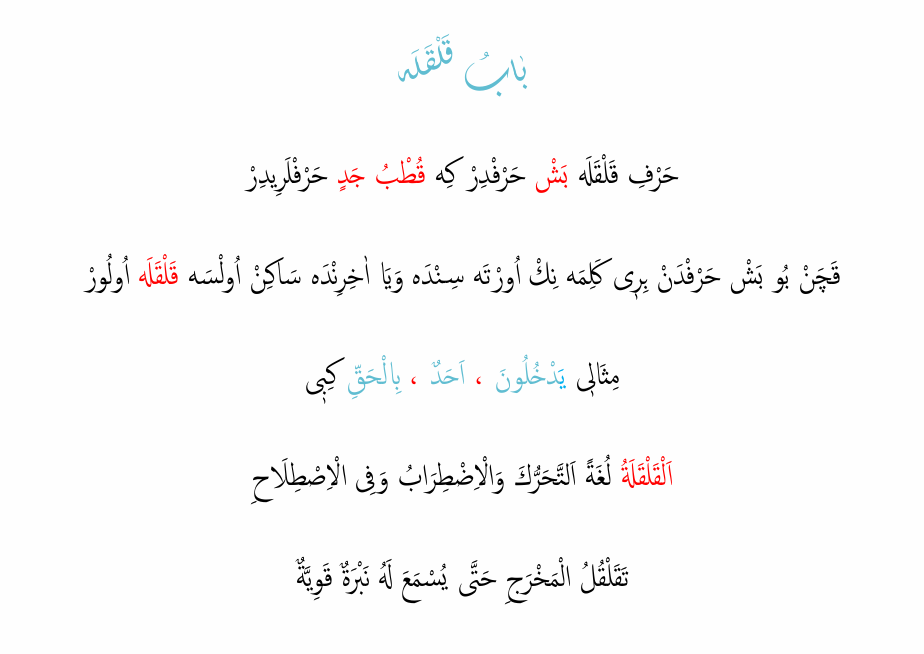 بَابُ قَلْقَلَه
حَرْفِ قَلْقَلَه بَشْ حَرْفْدِرْ كِه قُطْبُ جَدٍ حَرْفْلَرِيدِرْ
قَچَنْ بُو بَشْ حَرْفْدَنْ بِرِى كَلِمَه نِكْ اُورْتَه سِنْدَه وَيَا اٰخِرِنْدَه سَاكِنْ اُولْسَه قَلْقَلَه اُولُورْ
مِثَالِى يَدْخُلُونَ ، اَحَدٌ ، بِالْحَقِّ كِبِى
اَلْقَلْقَلَةُ لُغَةً اَلتَّحَرُّكَ وَالْاِضْطِرَابُ وَفِى الْاِصْطِلَاحِ
تَقَلْقُلُ الْمَخْرَجِ حَتَّى يُسْمَعَ لَهُ نَبْرَةٌ قَوِيَّةٌ